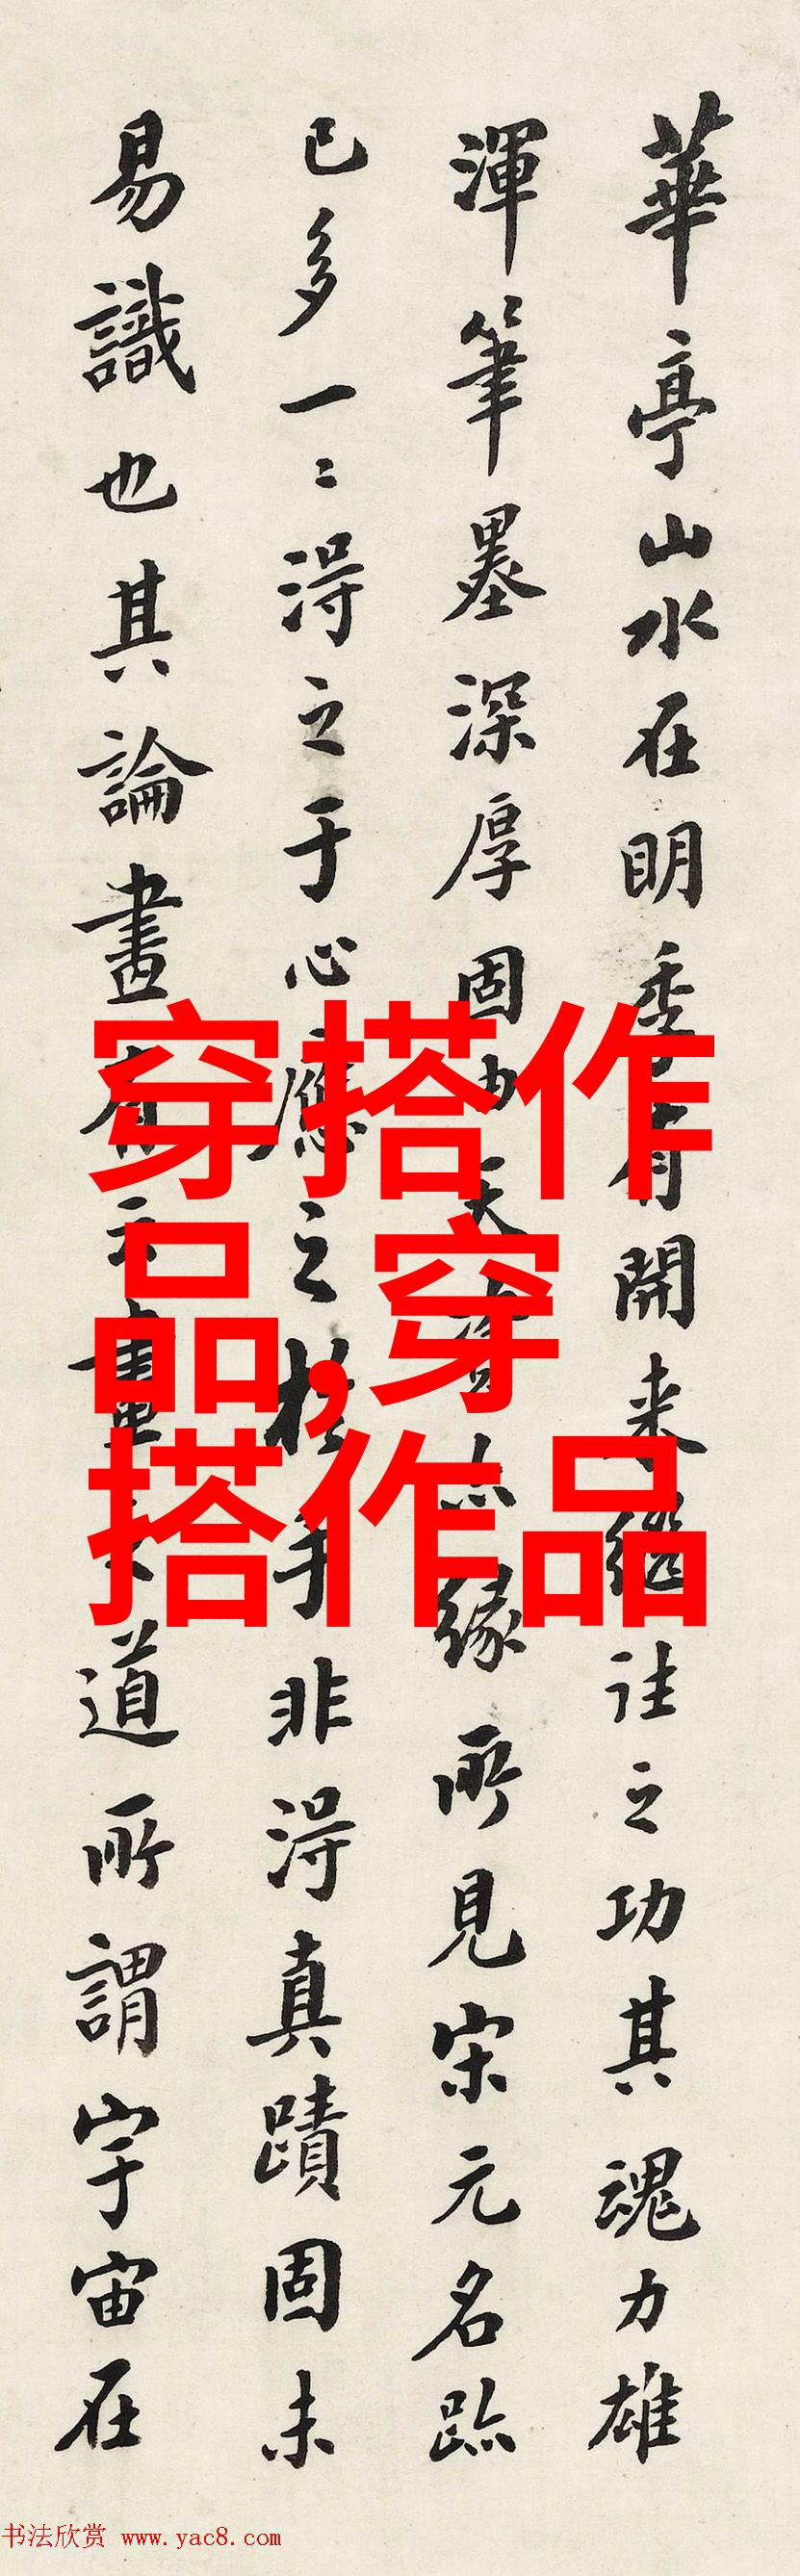 華亭山水在明季有開来繼往之功其魂力雄
渾筆墨深厚固由天亦緣所見宋元名跡
已多一二得之于心應之於手非得真蹟固未
易識也其論畫有云畫之道所謂宇宙在
穿搭作
品,穿
搭作品
书法欣赏 www.yac8.com